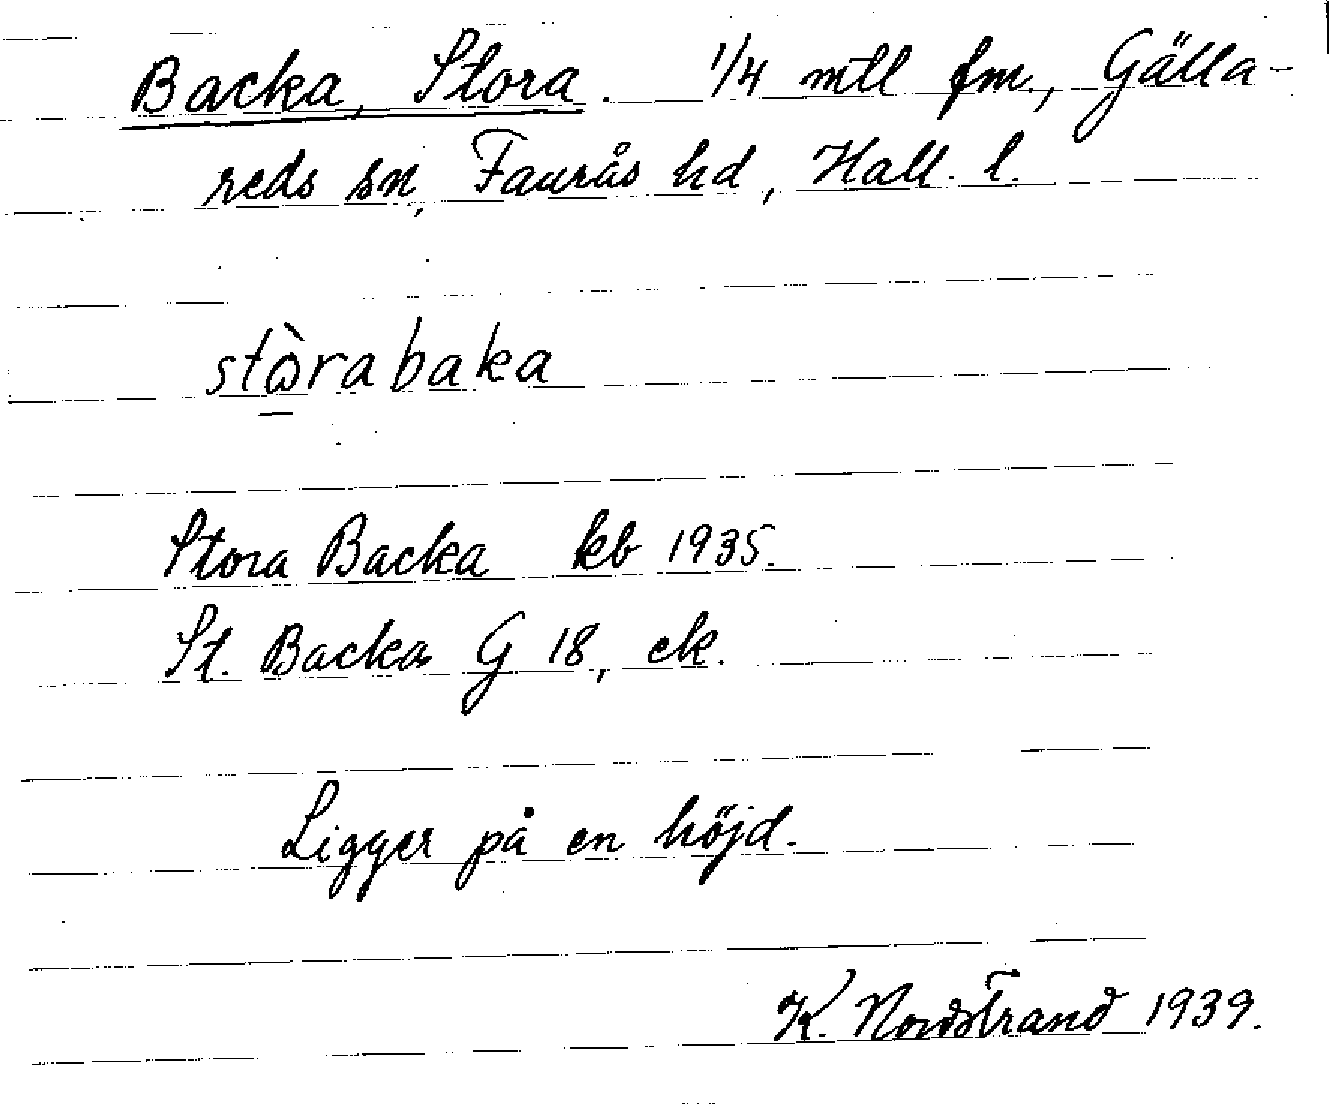 Backa, Stora. 1/4 mtl fm., Gälla-
reds sn, Faurås hd, Hall. l.
stὼrabaka
Stora Backa kb 1935.
St. Backa G 18, ek.
Ligger på en höjd.
K. Nordstrand 1939.